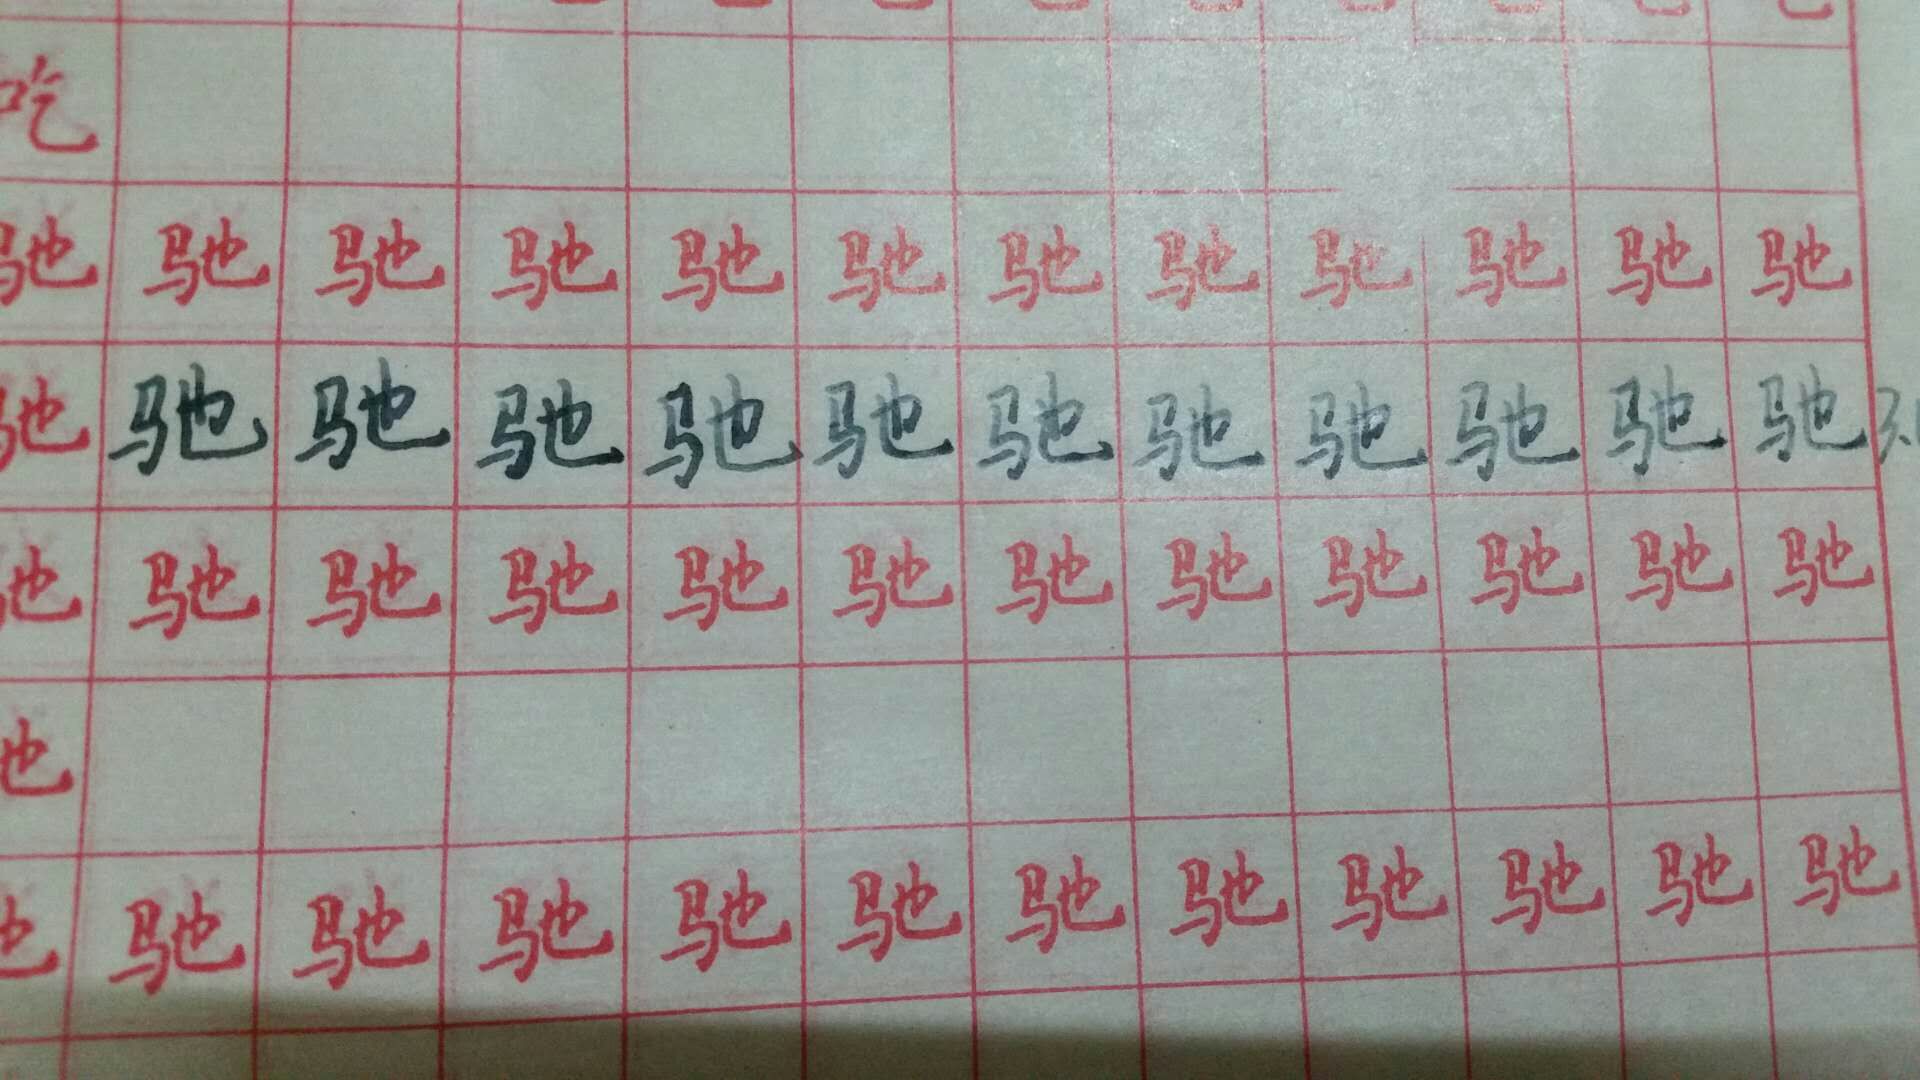 吃
驰 驰 驰 驰 驰 驰 驰 驰 驰 驰 驰 驰
驰 驰 驰 驰 驰 驰 驰 驰 驰 驰 驰 驰
驰 驰 驰 驰 驰 驰 驰 驰 驰 驰 驰 驰
也
驰 驰 驰 驰 驰 驰 驰 驰 驰 驰 驰